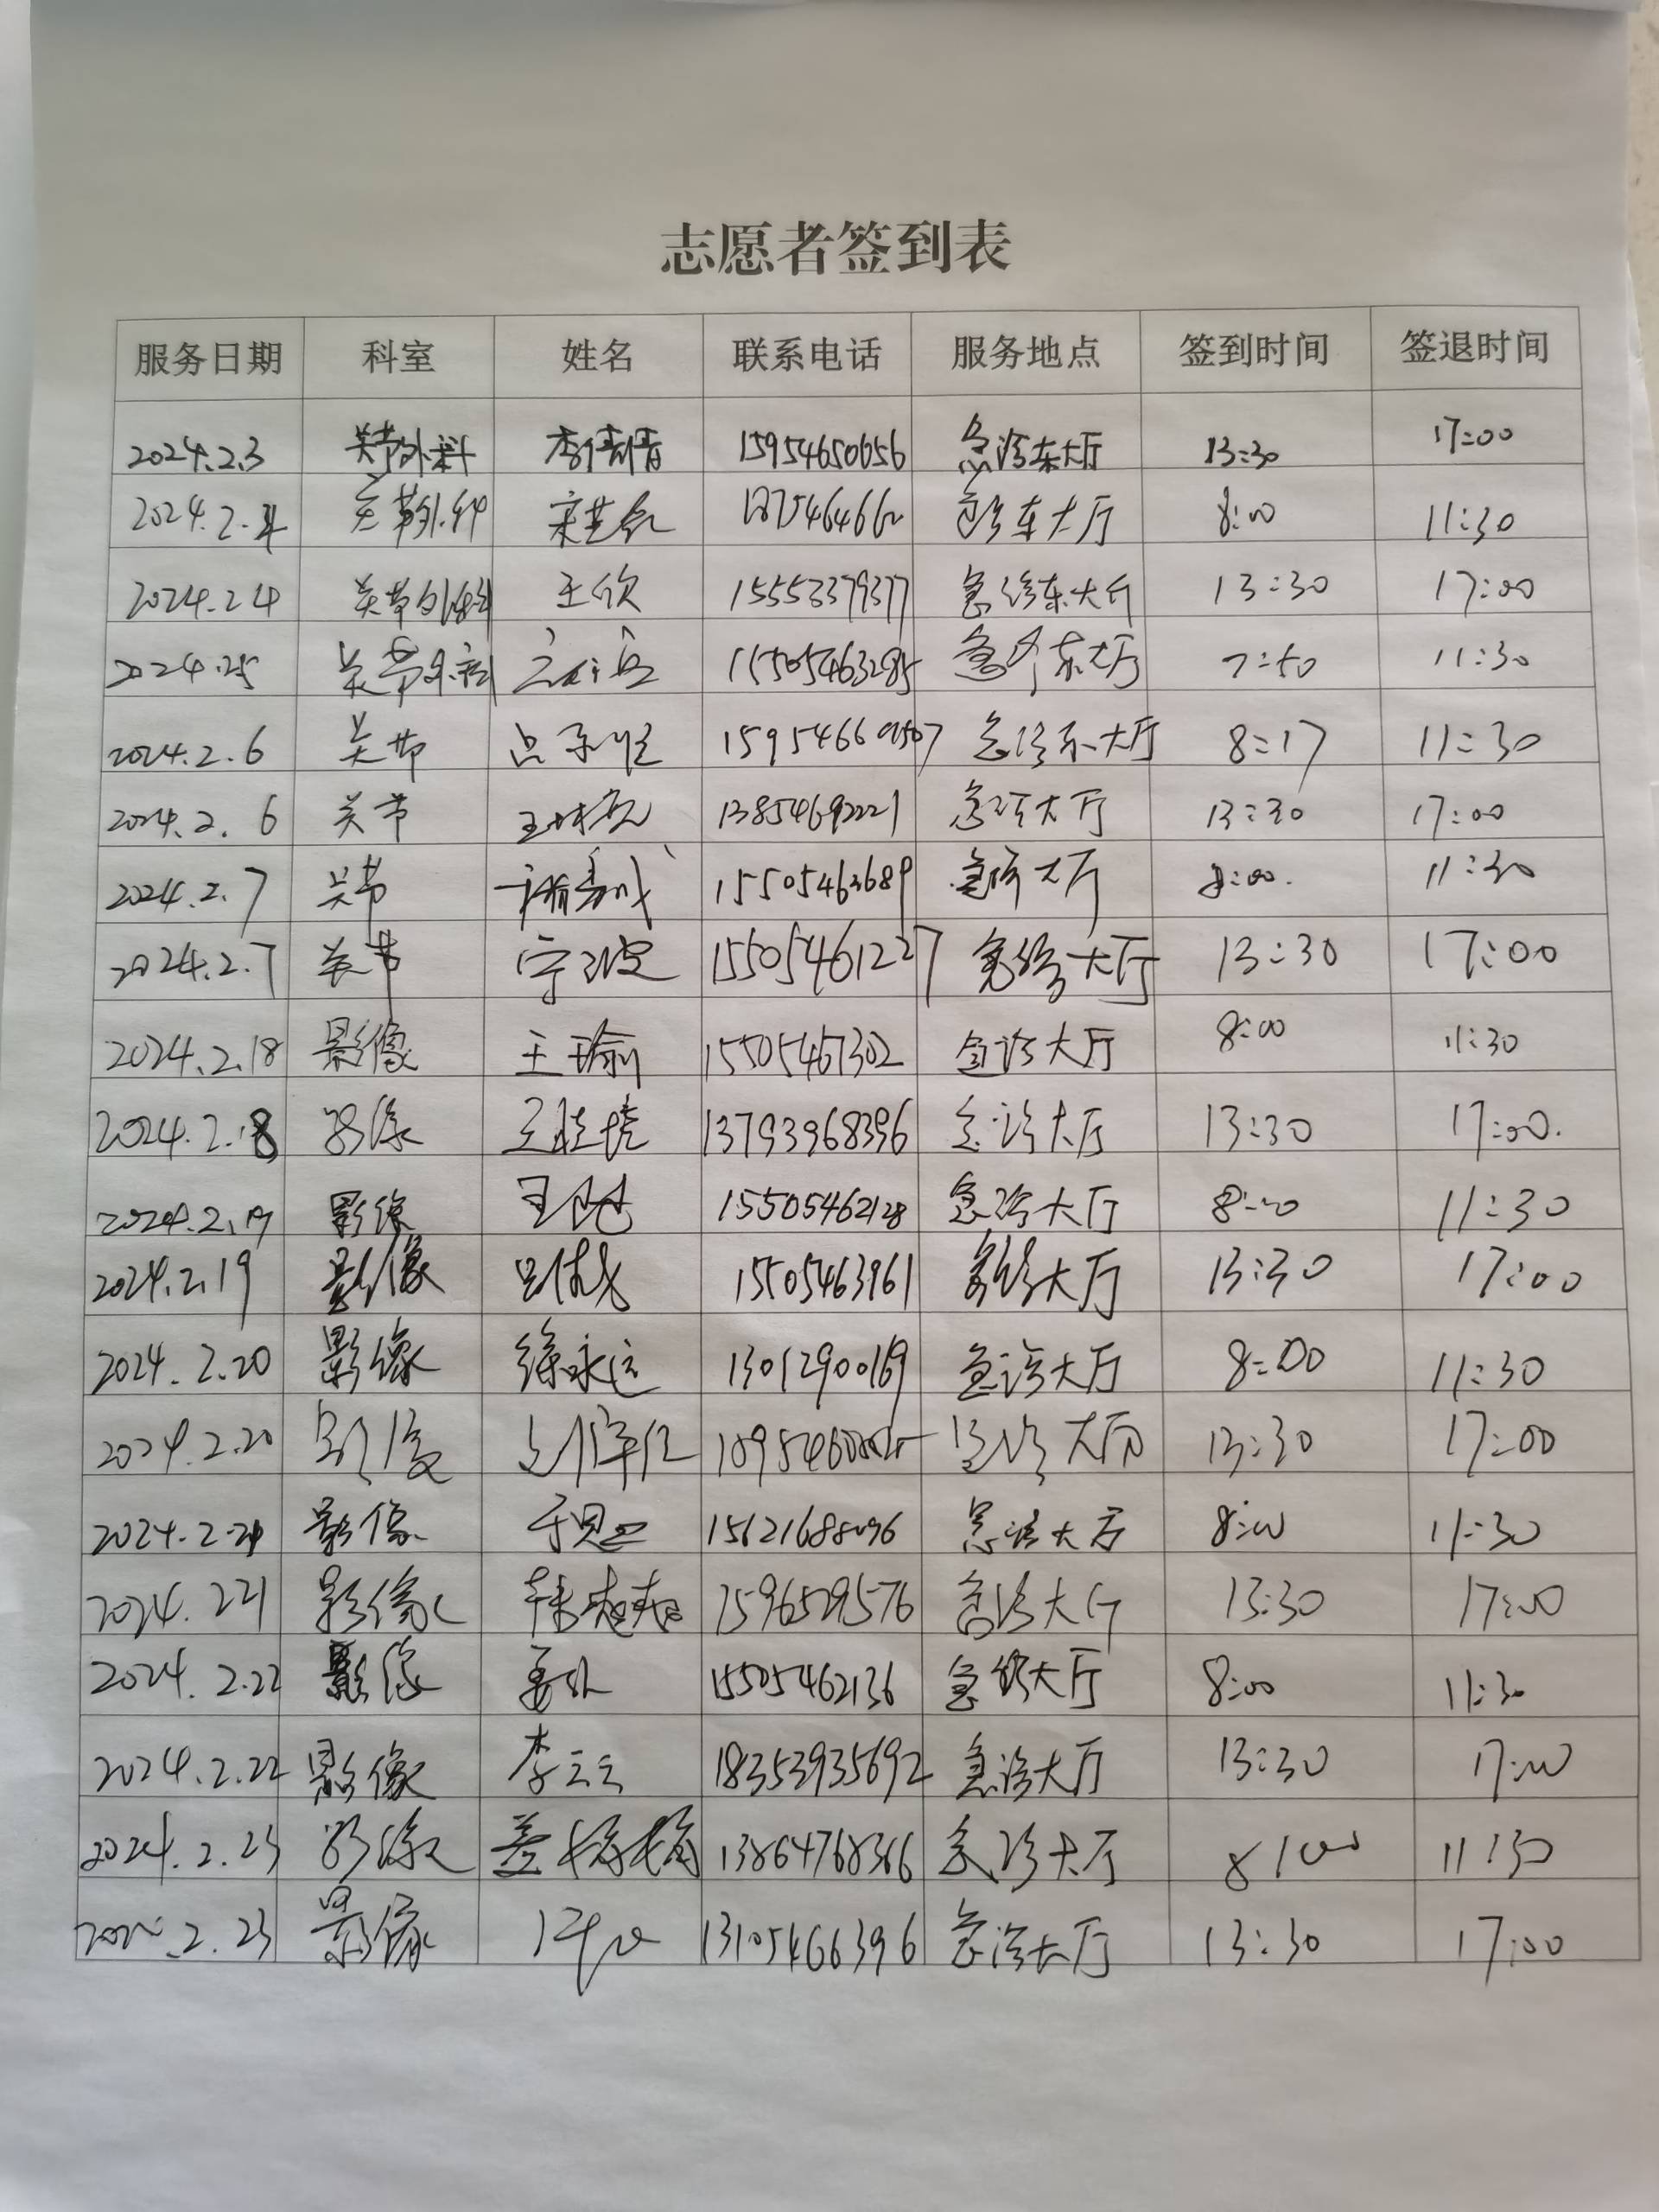 志愿者签到表
服务日期 科室 姓名 联系电话 服务地点 签到时间 签退时间
2024.2.3 关节外科 李倩倩 15954650656 急诊东大厅 13:30 17:00
2024.2.4 关节外科 急诊东大厅 8:00 11:30
2024.2.4 关节外科 王欣 15553379377 急诊东大厅 13:30 17:00
2024.2.5 关节外科 15505463285 急诊东大厅 7:50 11:30
2024.2.6 关节 急诊东大厅 8:17 11:30
2024.2.6 关节 13854692221 急诊大厅 13:30 17:00
2024.2.7 关节 15505463689 急诊大厅 8:00. 11:30
2024.2.7 关节 15505461227 急诊大厅 13:30 17:00
2024.2.18 影像 王瑜 15505467302 急诊大厅 8:00 11:30
2024.2.18 影像 13793968396 急诊大厅 13:30 17:00.
2024.2.19 影像 15505462128 急诊大厅 8:00 11:30
2024.2.19 影像 15505463961 急诊大厅 13:30 17:00
2024.2.20 影像 徐永远 13012900169 急诊大厅 8:00 11:30
2024.2.20 影像 急诊大厅 13:30 17:00
2024.2.21 影像 15621688096 急诊大厅 8:00 11:30
2024.2.21 影像 急诊大厅 13:30 17:00
2024.2.22 影像 15505462136 急诊大厅 8:00 11:30
2024.2.22 影像 李云云 18353935692 急诊大厅 13:30 17:00
2024.2.23 影像 姜梅梅 13864768366 急诊大厅 8:00 11:30
2024.2.23 影像 13105466396 急诊大厅 13:30 17:00